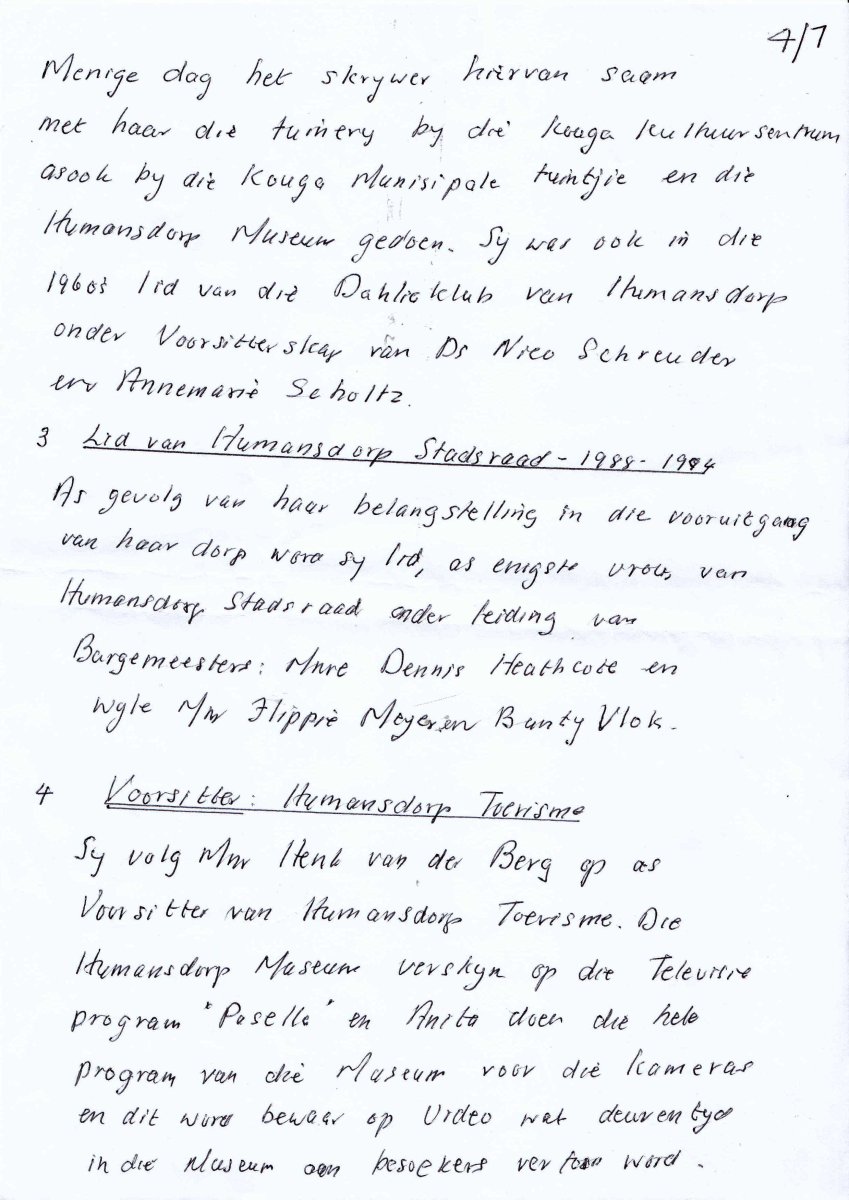 4/7
Menige dag het skrywer hiervan saam
met haar die tuinery by die Kouga Kultuursentrum
asook by die Kouga Munisipale tuintjie en die
Humansdorp Museum gedoen. Sy was ook in die
1960s lid van die Dahliaklub van Humansdorp
onder Voorsitterskap van Ds Nico Schreuder
en Annemarie Scholtz.
3 Lid van Humansdorp Stadsraad - 1988 - 1994
As gevolg van haar belangstelling in die vooruitgang
van haar dorp word sy lid, as enigste vrou, van
Humansdorp Stadsraad onder leiding van
Burgemeesters: Mnre Dennis Heathcote en
wyle Mnr Flippie Meyer en Bunty Vlok.
4 Voorsitter: Humansdorp Toerisme
Sy volg Mnr Henk van der Berg op as
Voorsitter van Humansdorp Toerisme. Die
Humansdorp Museum verskyn op die Televisie
program "Pasella" en Anita doen die hele
program van die Museum voor die kameras
en dit word bewaar op Video wat deurentyd
in die Museum aan besoekers vertoon word.